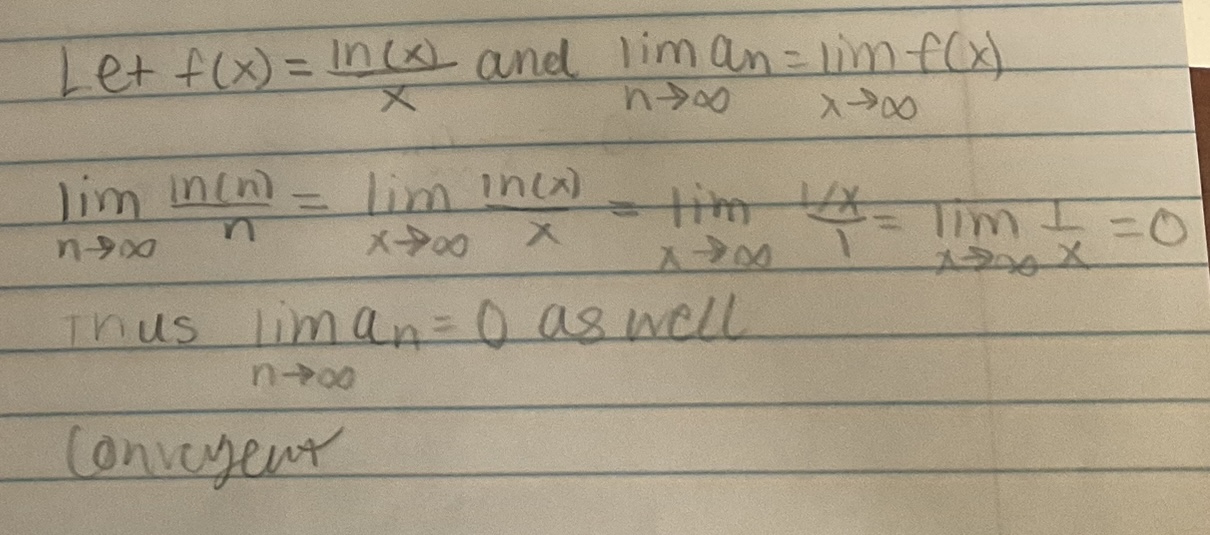 Let f(x) = ln(x)/x and lim n→∞ an = lim x→∞ f(x)
lim n→∞ ln(n)/n = lim x→∞ ln(x)/x = lim x→∞ 1/x/1 = lim x→∞ 1/x = 0
Thus lim n→∞ an = 0 as well
Convergent